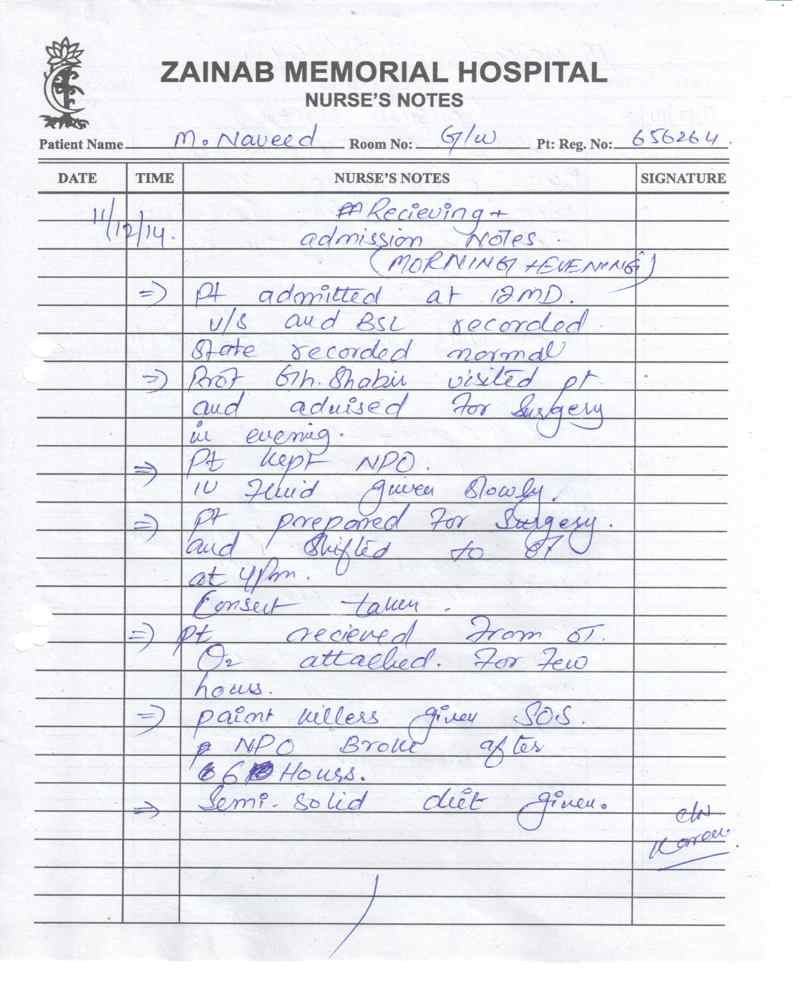 ZAINAB MEMORIAL HOSPITAL
NURSE'S NOTES
Patient Name M. Naveed Room No: G/w Pt: Reg. No: 656264.
DATE TIME NURSE'S NOTES SIGNATURE
11/12/14. Recieving +
admission Notes.
(MORNING + EVENING)
⇒ Pt admitted at 12MD.
v/s and BSL recorded.
State recorded normal
⇒ Prof Gh. Shabir visited pt
and advised For Surgery
in evening.
⇒ Pt kept NPO.
IV Fluid given Slowly.
⇒ Pt prepared For Surgery.
and Shifted to OT
at 4/Pm.
Consent taken.
⇒ Pt recieved From OT.
O2 attached. For Few
hours.
⇒ paint killers given SOS.
NPO Broke after
6 Hours.
⇒ Semi-Solid diet given.
C/N